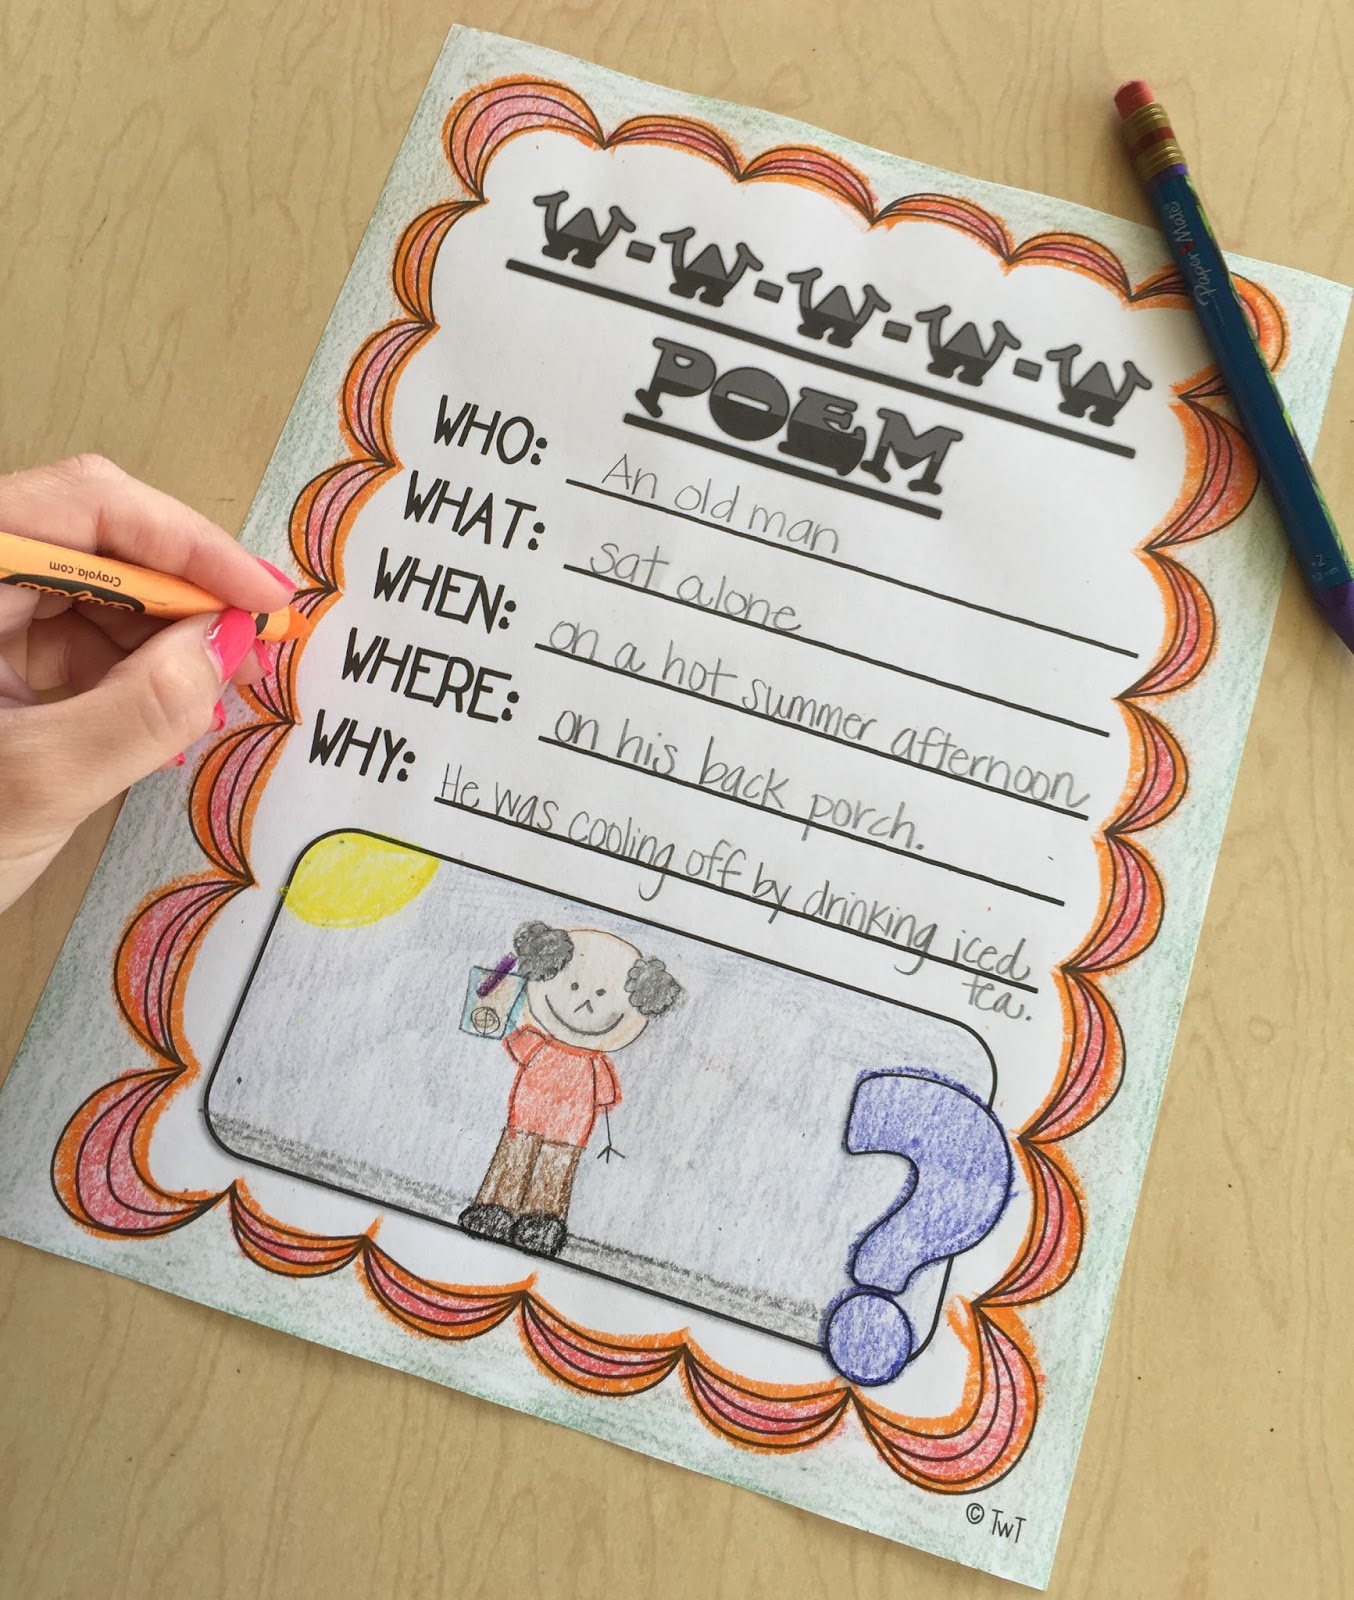 W-W-W-W-W
POEM
WHO: An old man
WHAT: sat alone
WHEN: on a hot summer afternoon
WHERE: on his back porch.
WHY: He was cooling off by drinking iced
tea.
?
© TwT
Crayola.com
Paper Mate